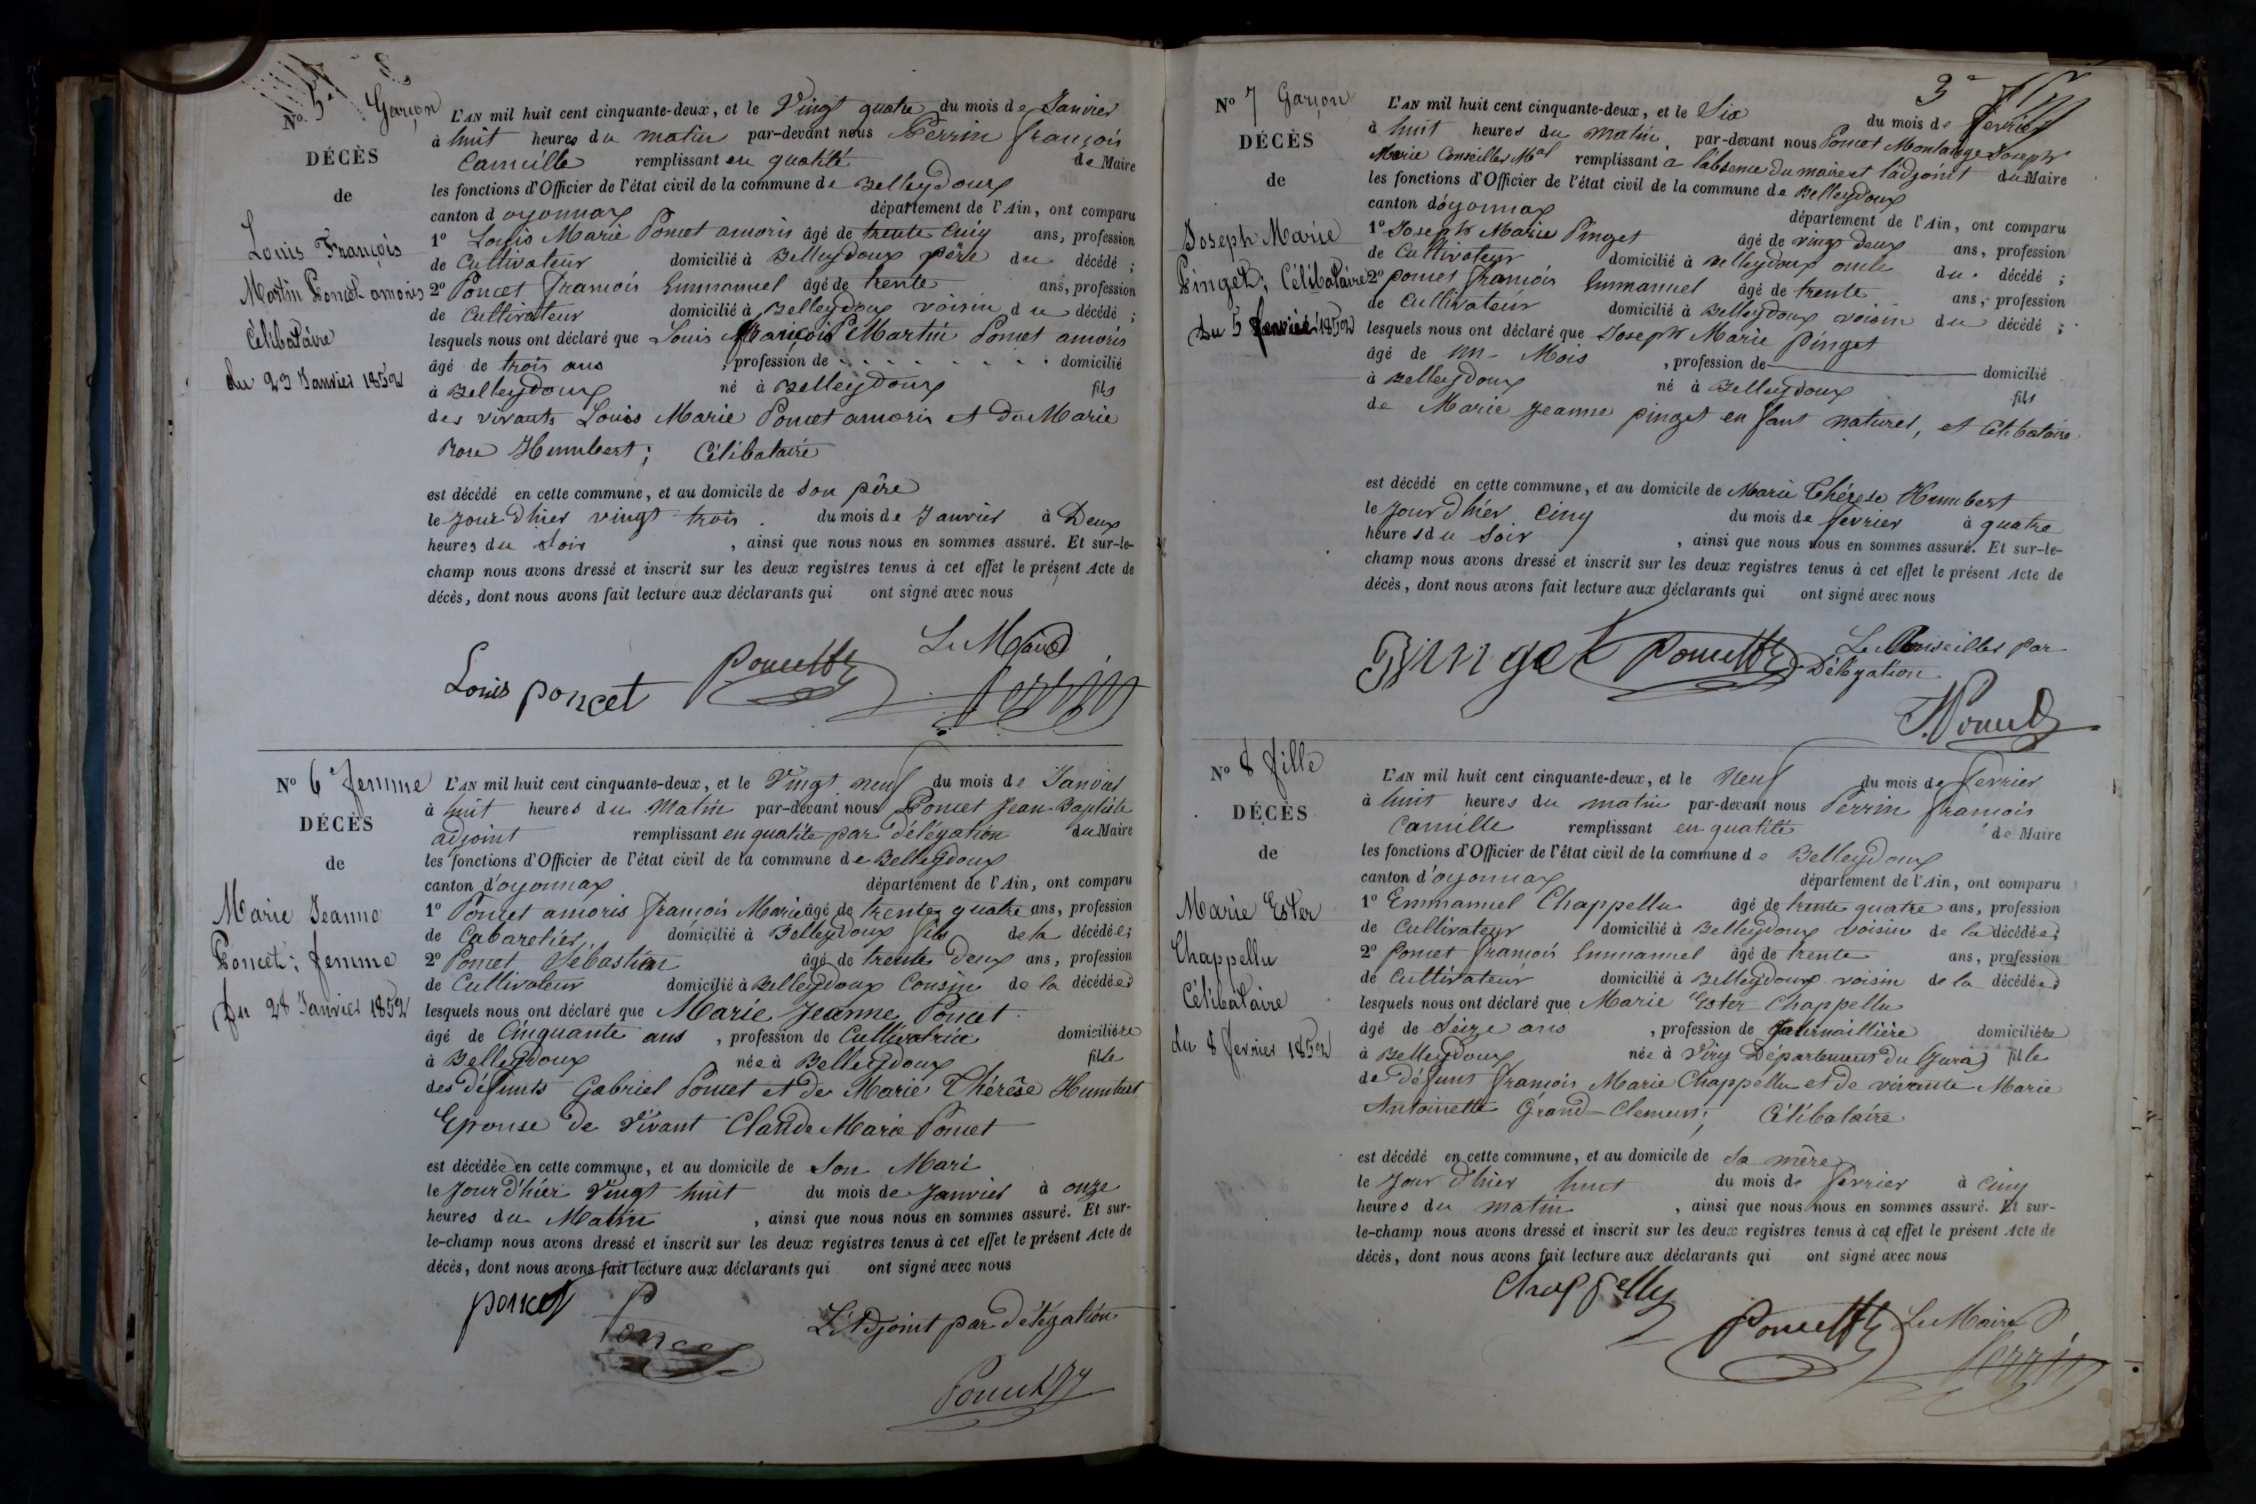 Nº 5 Garçon
DÉCÈS
de
Louis François
Martin Poncet amoris
Célibataire
du 23 Janvier 1852
L'AN mil huit cent cinquante-deux, et le Vingt quatre du mois de Janvier
à huit heures du matin par-devant nous Perrin françois
Camille remplissant en qualité de Maire
les fonctions d'Officier de l'état civil de la commune de Belleydoux
canton d'oyonnax département de l'Ain, ont comparu
1º Louis Marie Poncet amoris âgé de trente cinq ans, profession
de Cultivateur domicilié à Belleydoux père du décédé ;
2º Poncet francois Emmanuel âgé de trente ans, profession
de Cultivateur domicilié à Belleydoux voisin du décédé ;
lesquels nous ont déclaré que Louis François Martin Poncet amoris
âgé de trois ans , profession de domicilié
à Belleydoux né à Belleydoux fils
des vivants Louis Marie Poncet amoris et de Marie
Rose Humbert ; Célibataire
est décédé en cette commune, et au domicile de son père
le jour d'hier vingt trois du mois de Janvier à Deux
heures du soir , ainsi que nous nous en sommes assuré. Et sur-le-
champ nous avons dressé et inscrit sur les deux registres tenus à cet effet le présent Acte de
décès, dont nous avons fait lecture aux déclarants qui ont signé avec nous
Le Maire
Louis poncet Poncet Perrin
Nº 6 femme
DÉCÈS
de
Marie Jeanne
Poncet ; femme
du 28 Janvier 1852
L'AN mil huit cent cinquante-deux, et le Vingt neuf du mois de Janvier
à huit heures du Matin par-devant nous Poncet Jean-Baptiste
adjoint remplissant en qualité par délégation du Maire
les fonctions d'Officier de l'état civil de la commune de Belleydoux
canton d'oyonnax département de l'Ain, ont comparu
1º Poncet amoris francois Marie âgé de trente quatre ans, profession
de Cabaretier domicilié à Belleydoux fils de la décédée ;
2º Poncet Sébastien âgé de trente deux ans, profession
de Cultivateur domicilié à Belleydoux Cousin de la décédée ;
lesquels nous ont déclaré que Marie Jeanne Poncet
âgé de Cinquante ans , profession de Cultivatrice domiciliée
à Belleydoux née à Belleydoux fille
des défunts Gabriel Poncet et de Marie Thérèse Humbert
Epouse de vivant Claude Marie Poncet
est décédée en cette commune, et au domicile de son Mari
le jour d'hier Vingt huit du mois de Janvier à onze
heures du Matin , ainsi que nous nous en sommes assuré. Et sur-
le-champ nous avons dressé et inscrit sur les deux registres tenus à cet effet le présent Acte de
décès, dont nous avons fait lecture aux déclarants qui ont signé avec nous
poncet Poncet L'Adjoint par délégation
Poncet
3
Nº 7 Garçon
DÉCÈS
de
Joseph Marie
Pinget ; Célibataire
du 5 1852
L'AN mil huit cent cinquante-deux, et le Six du mois de fevrier
à huit heures du matin, par-devant nous Poncet Montange Joseph
Marie Conseiller Mal remplissant à l'absence du maire et l'adjoint du Maire
les fonctions d'Officier de l'état civil de la commune de Belleydoux
canton d'oyonnax département de l'Ain, ont comparu
1º Joseph Marie Pinget âgé de vingt deux ans, profession
de Cultivateur domicilié à Belleydoux oncle du décédé ;
2º poncet francois Emmanuel âgé de trente ans, profession
de Cultivateur domicilié à Belleydoux voisin du décédé ;
lesquels nous ont déclaré que Joseph Marie Pinget
âgé de un Mois , profession de domicilié
à Belleydoux né à Belleydoux fils
de Marie Jeanne pinget enfant naturel, et Célibataire
est décédé en cette commune, et au domicile de Marie Thérèse Humbert
le jour d'hier cinq du mois de fevrier à quatre
heures du Soir , ainsi que nous nous en sommes assuré. Et sur-le-
champ nous avons dressé et inscrit sur les deux registres tenus à cet effet le présent Acte de
décès, dont nous avons fait lecture aux déclarants qui ont signé avec nous
Pinget Poncet Le Conseiller par
Délégation
Poncet
Nº 8 fille
DÉCÈS
de
Marie Ester
Chappellu
Célibataire
du 8 fevrier 1852
L'AN mil huit cent cinquante-deux, et le neuf du mois de fevrier
à huit heures du matin par-devant nous Perrin francois
Camille remplissant en qualité de Maire
les fonctions d'Officier de l'état civil de la commune de Belleydoux
canton d'oyonnax département de l'Ain, ont comparu
1º Emmanuel Chappellu âgé de trente quatre ans, profession
de Cultivateur domicilié à Belleydoux voisin de la décédée ;
2º Poncet francois Emmanuel âgé de trente ans, profession
de Cultivateur domicilié à Belleydoux voisin de la décédée
lesquels nous ont déclaré que Marie Ester Chappellu
âgé de Seize ans , profession de Journaillière domiciliée
à Belleydoux née à Viry Département du (Jura) fille
de défunt francois Marie Chappellu et de vivante Marie
Antoinette Grand-Clement ; Célibataire
est décédé en cette commune, et au domicile de sa mère
le jour d'hier huit du mois de fevrier à cinq
heures du matin , ainsi que nous nous en sommes assuré. Et sur-
le-champ nous avons dressé et inscrit sur les deux registres tenus à cet effet le présent Acte de
décès, dont nous avons fait lecture aux déclarants qui ont signé avec nous
Chappellu
Poncet Le Maire
Perrin